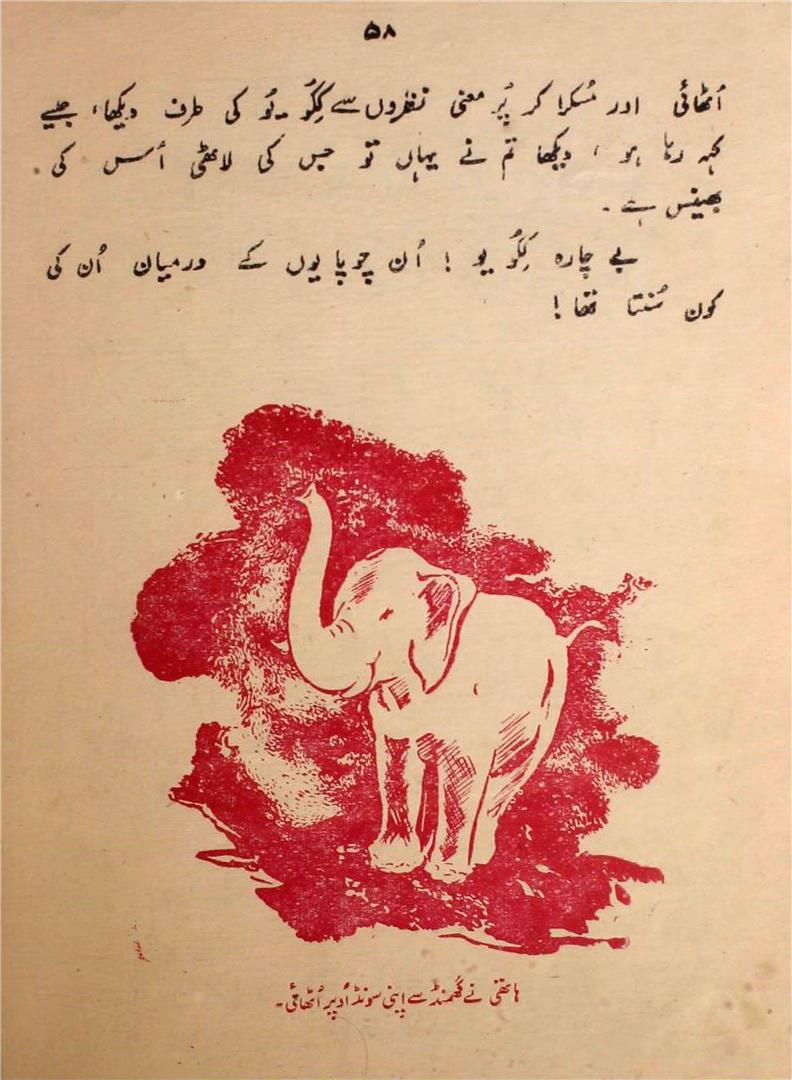 ۵۸
اُٹھائی اور مُسکرا کر پُر معنی نظروں سے کِکُو۔یُو کی طرف دیکھا، جیسے
کہہ رہا ہو، دیکھا تم نے یہاں تو جس کی لاٹھی اُسس کی
بھینس ہے۔
بے چارہ کِکُو یو ! اُن چوپایوں کے درمیان اُن کی
کون سُنتا تھا!
ہاتھی نے گھمنڈ سے اپنی سونڈ اُوپر اُٹھائی۔